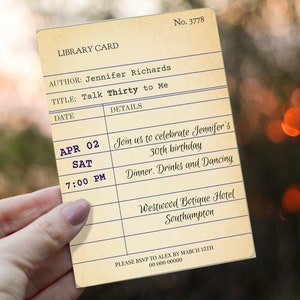 No. 3778
LIBRARY CARD
AUTHOR: Jennifer Richards
TITLE: Talk Thirty to Me
DATE DETAILS
APR 02
SAT
7:00 PM
Join us to celebrate Jennifer's
30th birthday
Dinner, Drinks and Dancing
Westwood Botique Hotel
Southampton
PLEASE RSVP TO ALEX BY MARCH 13TH
00 000 00000